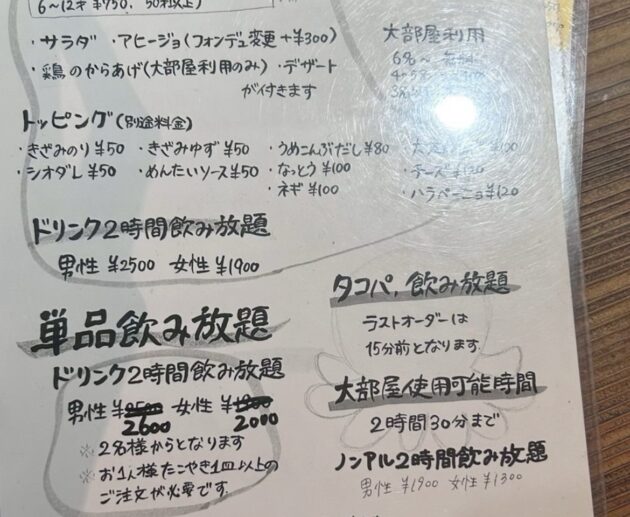 6〜12才 ¥950, 50秒以上)
・サラダ ・アヒージョ(フォンデュ変更 +¥300)
・鶏のからあげ(大部屋利用のみ)・デザート
が付きます
トッピング(別途料金)
・きざみのり ¥50 ・きざみゆず ¥50 ・うめこんぶだし ¥80
・シオダレ ¥50 ・めんたいソース ¥50 ・なっとう ¥100 ・チーズ ¥120
・ネギ ¥100 ・ハラペーニョ ¥120
大部屋利用
6名〜
ドリンク2時間飲み放題
男性 ¥2500 女性 ¥1900
単品飲み放題
ドリンク2時間飲み放題
男性 ¥2500 女性 ¥1900
2600 2000
※2名様からとなります
※お1人様たこやき1皿以上の
ご注文が必要です。
タコパ, 飲み放題
ラストオーダーは
15分前となります
大部屋使用可能時間
2時間30分まで
ノンアル2時間飲み放題
男性 ¥1900 女性 ¥1300